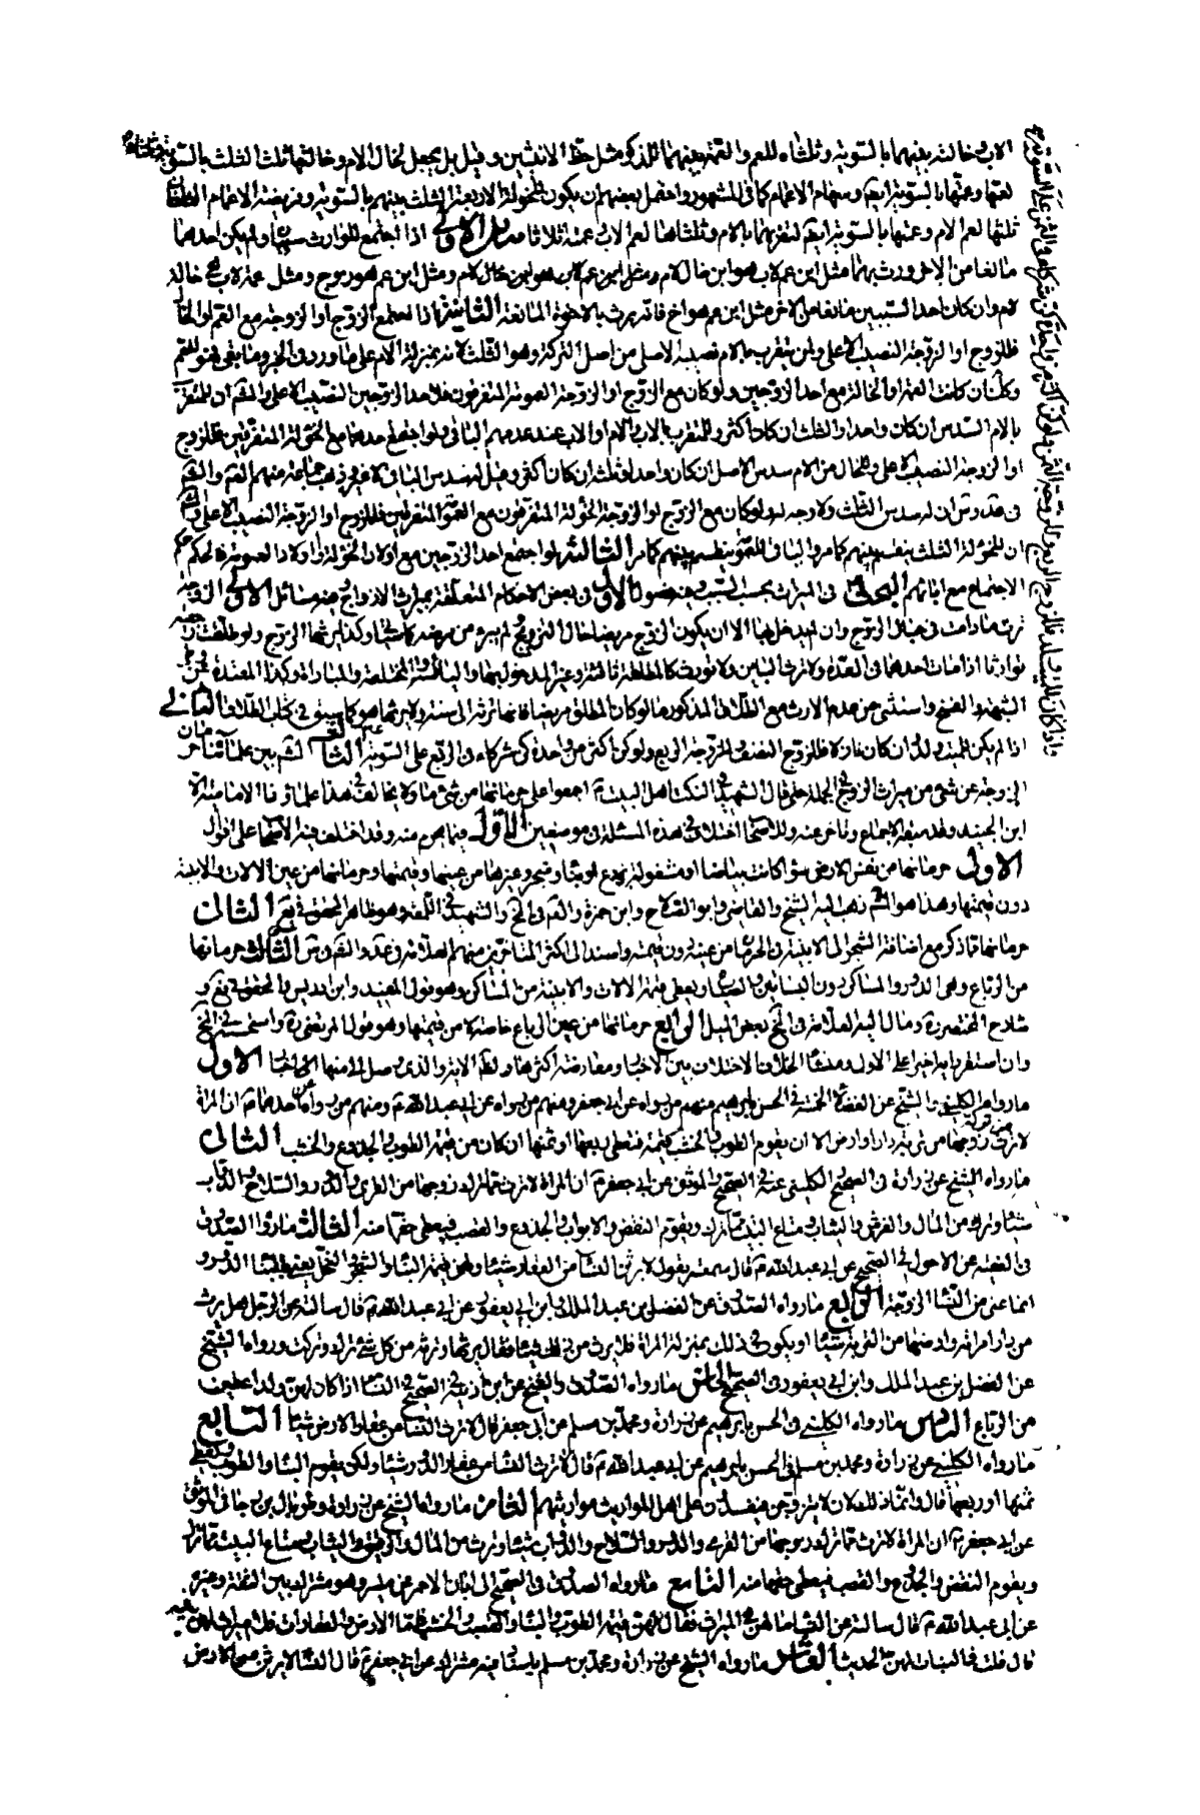 الاب وخالته بينهما بالسوية وثلثاه للعم والعمة بينهما للذكر مثل حظ الانثيين وقيل بل يجعل لخال الام وخالتها ثلث الثلث بالسوية وثلثاه
لعمها وعمتها بالسوية ايضا وسهام الاعمام كما في المشهور واحتمل بعضهم ان يكون للخؤلة الاربعة الثلث بينهم بالسوية وفريضة الاعمام الثلثان
ثلثها لعم الام وعمتها بالسوية ايضا لتقربهما بالام وثلثاها لعم الاب وعمته اثلاثا مسائل الاولى اذا اجتمع للوارث سببان ولم يكن احدهما
مانعا من الاخر ورث بهما مثل ابن عم لاب هو ابن خال لام ومثل ابن عم لاب هو ابن خال لام ومثل ابن عم هو زوج ومثل عمة لاب هي خالة
لام وان كان احد السببين مانعا من الاخر مثل ابن عم هو اخ فانه يرث بالاخوة المانعة الثانية اذا اجتمع الزوج او الزوجة مع العم او الخال
فللزوج او الزوجة النصيب الاعلى ولمن يتقرب بالام نصيبه الاصلي من اصل التركة وهو الثلث لانه بمنزلة الام على ما ورد في الخبر وما بقي فهو للعم
وكذا ان كانت العمة او الخالة مع احد الزوجين ولو كان مع الزوج او الزوجة العمومة المتفرقون فلاحد الزوجين النصيب الاعلى والمشهور ان للمتقرب
بالام السدس ان كان واحدا والثلث ان كان اكثر وللمتقرب بالاب والام او الاب عند عدمهم الباقي ولو اجتمع احدهما مع الخؤلة المتفرقين فللزوج
او الزوجة النصيب الاعلى وللخال من الام سدس الاصل ان كان واحدا وثلثه ان كان اكثر وقيل له سدس الباقي وذهب جماعة منهم
في عد وس ان له سدس الثلث ولا وجه له ولو كان مع الزوج او الزوجة الخؤلة المتفرقون مع العمومة المتفرقين فللزوج او الزوجة النصيب الاعلى
ان للخؤلة الثلث يقسم بينهم كما مر والباقي للعمومة يقسم بينهم كما مر الثالثة لو اجتمع احد الزوجين مع اولاد الخؤلة او اولاد العمومة فالحكم حكم
الاجتماع مع ابائهم البحث في الميراث بحسب السبب وفيه فصول الاول في بعض الاحكام المتعلقة بميراث الازواج وفيه مسائل الاولى الزوجة
ترث ما دامت في حبال الزوج وان لم يدخل بها الا ان يكون الزوج مريضا حال التزويج ولم يبرء من مرضه كما سيأتي وكذا يرثها الزوج ولو طلقت رجعية
توارثا اذا مات احدهما في العدة ولا ترث البائن ولا تورث كالمطلقة ثالثة وغير المدخول بها واليائسة والمختلعة والمباراة وكذا المعتدة عن وطي
الشبهة والفسخ واستثنى من عدم الارث مع الطلاق المذكور ما لو كان المطلق مريضا فانها ترثه الى سنة ولا يرثها هو كما سبق في كتاب الطلاق الثانية
اذا لم يكن للميت ولد ان كان نازلا فللزوج النصف وللزوجة الربع ولو كن اكثر من واحدة كن شركاء في الربع على السوية الثالثة المشهور بين علمائنا حرمان
الزوجة عن شيء من ميراث الزوج في الجملة حتى قال الشهيد في النكت اهل البيت ع اجمعوا على حرمانها من شيء ما ولا يخالف في هذا علماؤنا الامامية الا
ابن الجنيد وقد سبقه الاجماع وتاخر عنه وللاصحاب اختلاف في هذه المسئلة في موضعين الاول فيما يحرم منه وقد اختلف فيه الاصحاب على اقوال
الاول حرمانها من نفس الارض سواء كانت بياضا او مشغولة بزرع او بناء وشجر وغيرها من عينها وقيمتها وحرمانها من عين الالات والابنية
دون قيمتها وهذا هو المشهور ذهب اليه الشيخ والقاضي وابو الصلاح وابن حمزة والعلم في الخ والشهيد في اللمعة وهو ظاهر المحقق في يع الثاني
حرمانها مما ذكر مع اضافة الشجر الى الابنية في الحرمان من عينه دون قيمته واسند الى اكثر المتاخرين منهم العلامة في عد والشهيد في س الثالث حرمانها
من الرباع وهي الدور والمساكن دون البساتين والضياع ويعطى قيمة الالات والابنية من المساكن وهو قول المفيد وابن ادريس والمحقق في فع و
شارح المختصرة ومال اليه العلامة في الخ بعض الميل الرابع حرمانها من عين الرباع خاصة لا من قيمتها وهو قول المرتضى ره واستحسنه في الخ
وان استقر رايه اخيرا على الاول ومنشأ الخلاف الاختلاف بين الاخبار ومعارضة اكثرها ولظاهر الاية والذي وصل الي منها اخبار الاول
ما رواه الكليني والشيخ عن الفضلاء الخمسة في الحسن بابرهيم منهم من رواه عن ابي جعفر ومنهم من رواه عن ابي عبد الله ع ومنهم من رواه عن احدهما ع ان المراة
لا ترث من تركة زوجها من تربة دار او ارض الا ان يقوم الطوب والخشب قيمة فتعطى ربعها او ثمنها ان كان من قيمة الطوب والجذوع والخشب الثاني
ما رواه الشيخ عن زرارة في الصحيح والكليني عنه في الصحيح والموثق عن ابي جعفر ع ان المراة لا ترث مما ترك زوجها من القرى والدور والسلاح والدواب
شيئا وترث من المال والفرش والثياب ومتاع البيت مما ترك ويقوم النقض والابواب والجذوع والقصب فيعطى حقها منه الثالث ما رواه الصدوق
في الفقيه عن الاحول في الصحيح عن ابي عبد الله ع قال سمعته يقول لا يرثن النساء من العقار شيئا ولهن قيمة البناء والشجر والنخل يعني بالبناء الدور و
انما عنى من النساء الزوجة الرابع ما رواه الصدوق عن الفضل بن عبد الملك وابن ابي يعفور عن ابي عبد الله ع قال سالته عن الرجل هل يرث
من دار امراته وارضها من التربة شيئا او يكون في ذلك بمنزلة المراة فلا يرث من ذلك شيئا فقال يرثها وترثه من كل شيء ترك وتركت ورواه الشيخ
عن الفضل بن عبد الملك وابن ابي يعفور في الصحيح الخامس ما رواه الصدوق والشيخ عن ابن اذينة في الصحيح في النساء اذا كان لهن ولد اعطين
من الرباع السادس ما رواه الكليني في الحسن بابرهيم عن زرارة ومحمد بن مسلم عن ابي جعفر قال لا ترث النساء من عقار الارض شيئا السابع
ما رواه الكليني عن زرارة ومحمد بن مسلم في الحسن بابرهيم عن ابي عبد الله ع قال لا ترث النساء من عقار الدور شيئا ولكن يقوم البناء والطوب وتعطى
ثمنها او ربعها قال وانما ذلك لئلا يتزوجن فيفسدن على اهل المواريث مواريثهم الثامن ما رواه الشيخ عن زرارة وطربال بن رجا في الموثق
عن ابي جعفر ع ان المراة لا ترث مما ترك زوجها من القرى والدور والسلاح والدواب شيئا وترث من المال والرقيق والثياب ومتاع البيت مما ترك
ويقوم النقض والجذوع والقصب فيعطى حقها منه التاسع ما رواه الصدوق في الصحيح الى ابان الاحمر عن ميسر وهو مشترك بين الثقة وغيره
عن ابي عبد الله ع قال سالته عن النساء ما لهن من الميراث فقال لهن قيمة الطوب والبناء والقصب والخشب فاما الارض والعقارات فلا ميراث لهن فيه
قال قلت فالثياب لهن الحديث العاشر ما رواه الشيخ عن زرارة ومحمد بن مسلم باسناد فيه مشترك عن ابي جعفر ع قال النساء لا يرثن من الارض
واذا كان للميت ولد فللزوج الربع وللزوجة الثمن ولو كن اكثر من واحدة كن شركاء في الثمن على السوية